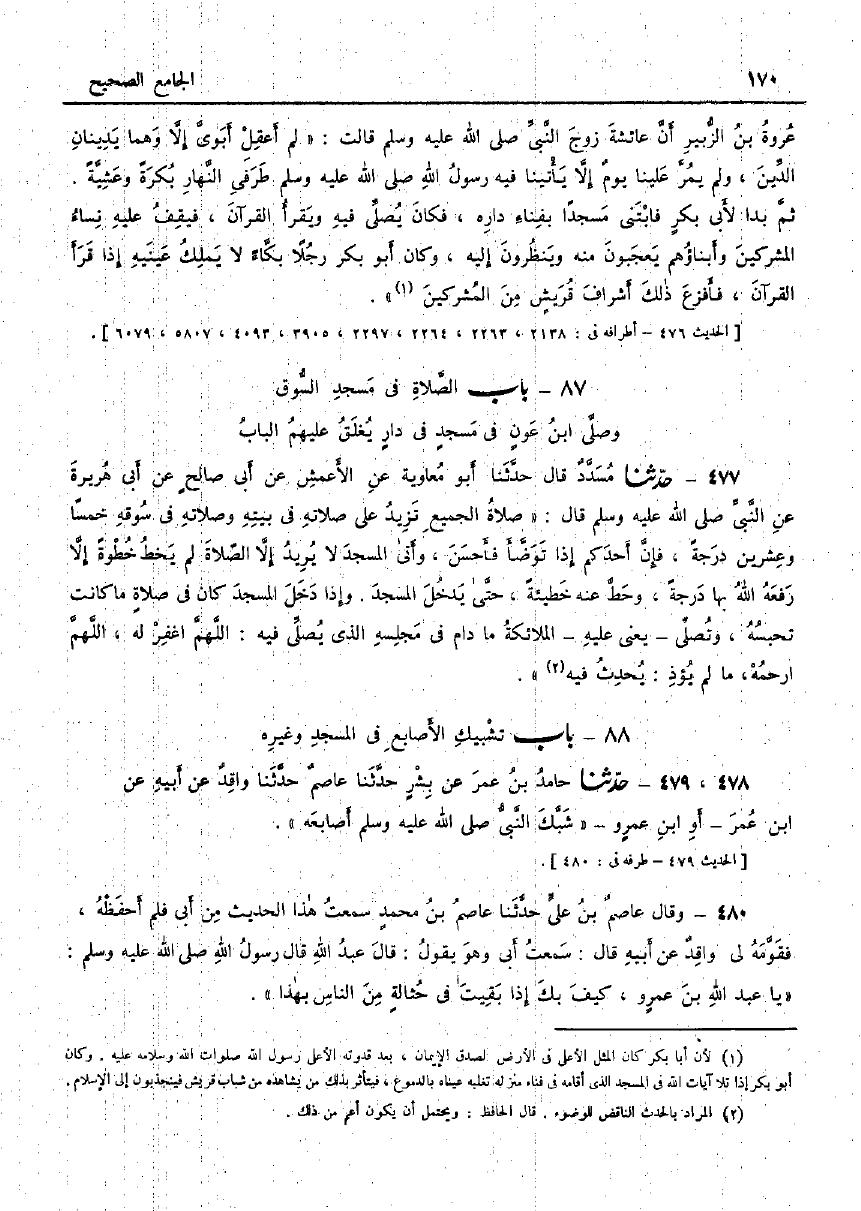 ١٧٠ الجامع الصحيح
عُروةُ بنُ الزُّبيرِ أَنَّ عائشةَ زوجَ النَّبيِّ صلى الله عليه وسلم قالت : « لم أَعقِلْ أَبَوىَّ إلَّا وَهما يَدِينانِ
الدِّينَ ، ولم يمُرَّ عَلينا يومٌ إلَّا يَأْتينا فيه رسولُ اللهِ صلى الله عليه وسلم طَرَفيِ النَّهارِ بُكرَةً وعَشِيَّةً .
ثمَّ بدا لأَبى بكرٍ فابْتَنى مَسجدًا بفِناءِ دارِه ، فكانَ يُصلِّى فيهِ ويَقرأُ القرآنَ ، فيقِفُ عليهِ نِساءُ
المشركينَ وأَبناؤُهم يَعجَبونَ منه ويَنظُرونَ إليه ، وكان أَبو بكر رجُلًا بكَّاءً لا يَملِكُ عَينَيهِ إذا قَرَأَ
القرآنَ ، فأَفزعَ ذٰلكَ أَشرافَ قُرَيشٍ مِنَ المُشركينَ (١) » .
[ الحديث ٤٧٦ – أطرافه فى : ٢١٣٨ ، ٢٢٦٣ ، ٢٢٦٤ ، ٢٢٩٧ ، ٣٩٠٥ ، ٤٠٩٣ ، ٥٨٠٧ ، ٦٠٧٩ ] .
٨٧ – باب الصَّلاةِ فى مَسجدِ السُّوق
وصلَّى ابنُ عَونٍ فى مَسجدٍ فى دارٍ يُغلَقُ عليهمُ البابُ
٤٧٧ – حدّثنا مُسَدَّدٌ قال حدَّثَنا أَبو مُعاوية عنِ الأَعمشِ عن أَبى صالحٍ عن أَبى هُريرةَ
عنِ النَّبيِّ صلى الله عليه وسلم قال : « صلاةُ الجميعِ تَزِيدُ على صلاتهِ فى بيتهِ وصلاتهِ فى سُوقهِ خمسًا
وعِشرين درَجةً ، فإنَّ أَحدَكم إذا تَوَضَّأَ فأَحسَنَ ، وأَتىٰ المسجدَ لا يُريدُ إلَّا الصّلاةَ لم يَخطُ خُطْوةً إلَّا
رَفعَهُ اللهُ بها دَرجةً ، وحَطَّ عنه خَطيئةً ، حتَّىٰ يَدخُلَ المسجدَ . وإذا دَخَلَ المسجدَ كان فى صلاةٍ ماكانت
تحبسُهُ ، وتُصلِّى – يعنى عليهِ – الملائكةُ ما دام فى مَجلِسهِ الذى يُصلِّى فيه : اللَّهمَّ اغفِرْ له ، اللَّهمَّ
ارحمْهُ، ما لم يُؤذِ : يُحدِثُ فيه(٢) » .
٨٨ – باب تشْبيكِ الأَصابعِ فى المسجدِ وغيرِه
٤٧٨ ، ٤٧٩ – حدّثنا حامدُ بنُ عمرَ عن بِشْرٍ حدَّثَنا عاصمٌ حدَّثَنا واقِدٌ عن أَبيهِ عن
ابن عُمرَ – أَو ابنِ عمرو – « شَبَّكَ النَّبيُّ صلى الله عليه وسلم أَصابعَه » .
[ الحديث ٤٧٩ – طرفه فى : ٤٨٠ ] .
٤٨٠ – وقال عاصمُ بنُ علىٍّ حدَّثَنا عاصمُ بنُ محمدٍ سمعتُ هٰذا الحديث مِن أَبى فلم أَحفَظْهُ ،
فقَوَّمَهُ لى واقِدٌ عن أَبيهِ قال : سَمعتُ أَبى وهوَ يقولُ : قالَ عبدُ اللهِ قال رسولُ اللهِ صلى الله عليه وسلم :
«يا عبد اللهِ بنَ عمرو ، كيفَ بكَ إذا بَقِيتَ فى حُثالةٍ مِنَ الناسِ بهٰذا » .
(١) لأن أبا بكر كان المثل الأعلى فى الأرض لصدق الإيمان ، بعد قدوته الأعلى رسول الله صلوات الله وسلامه عليه . وكان
أبو بكر إذا تلا آيات الله فى المسجد الذى أقامه فى فناء منزله تغلبه عيناه بالدموع ، فيتأثر بذلك من يشاهده من شباب قريش فينجذبون إلى الإسلام .
(٢) المراد بالحدث الناقض للوضوء . قال الحافظ : ويحتمل أن يكون أعم من ذلك .